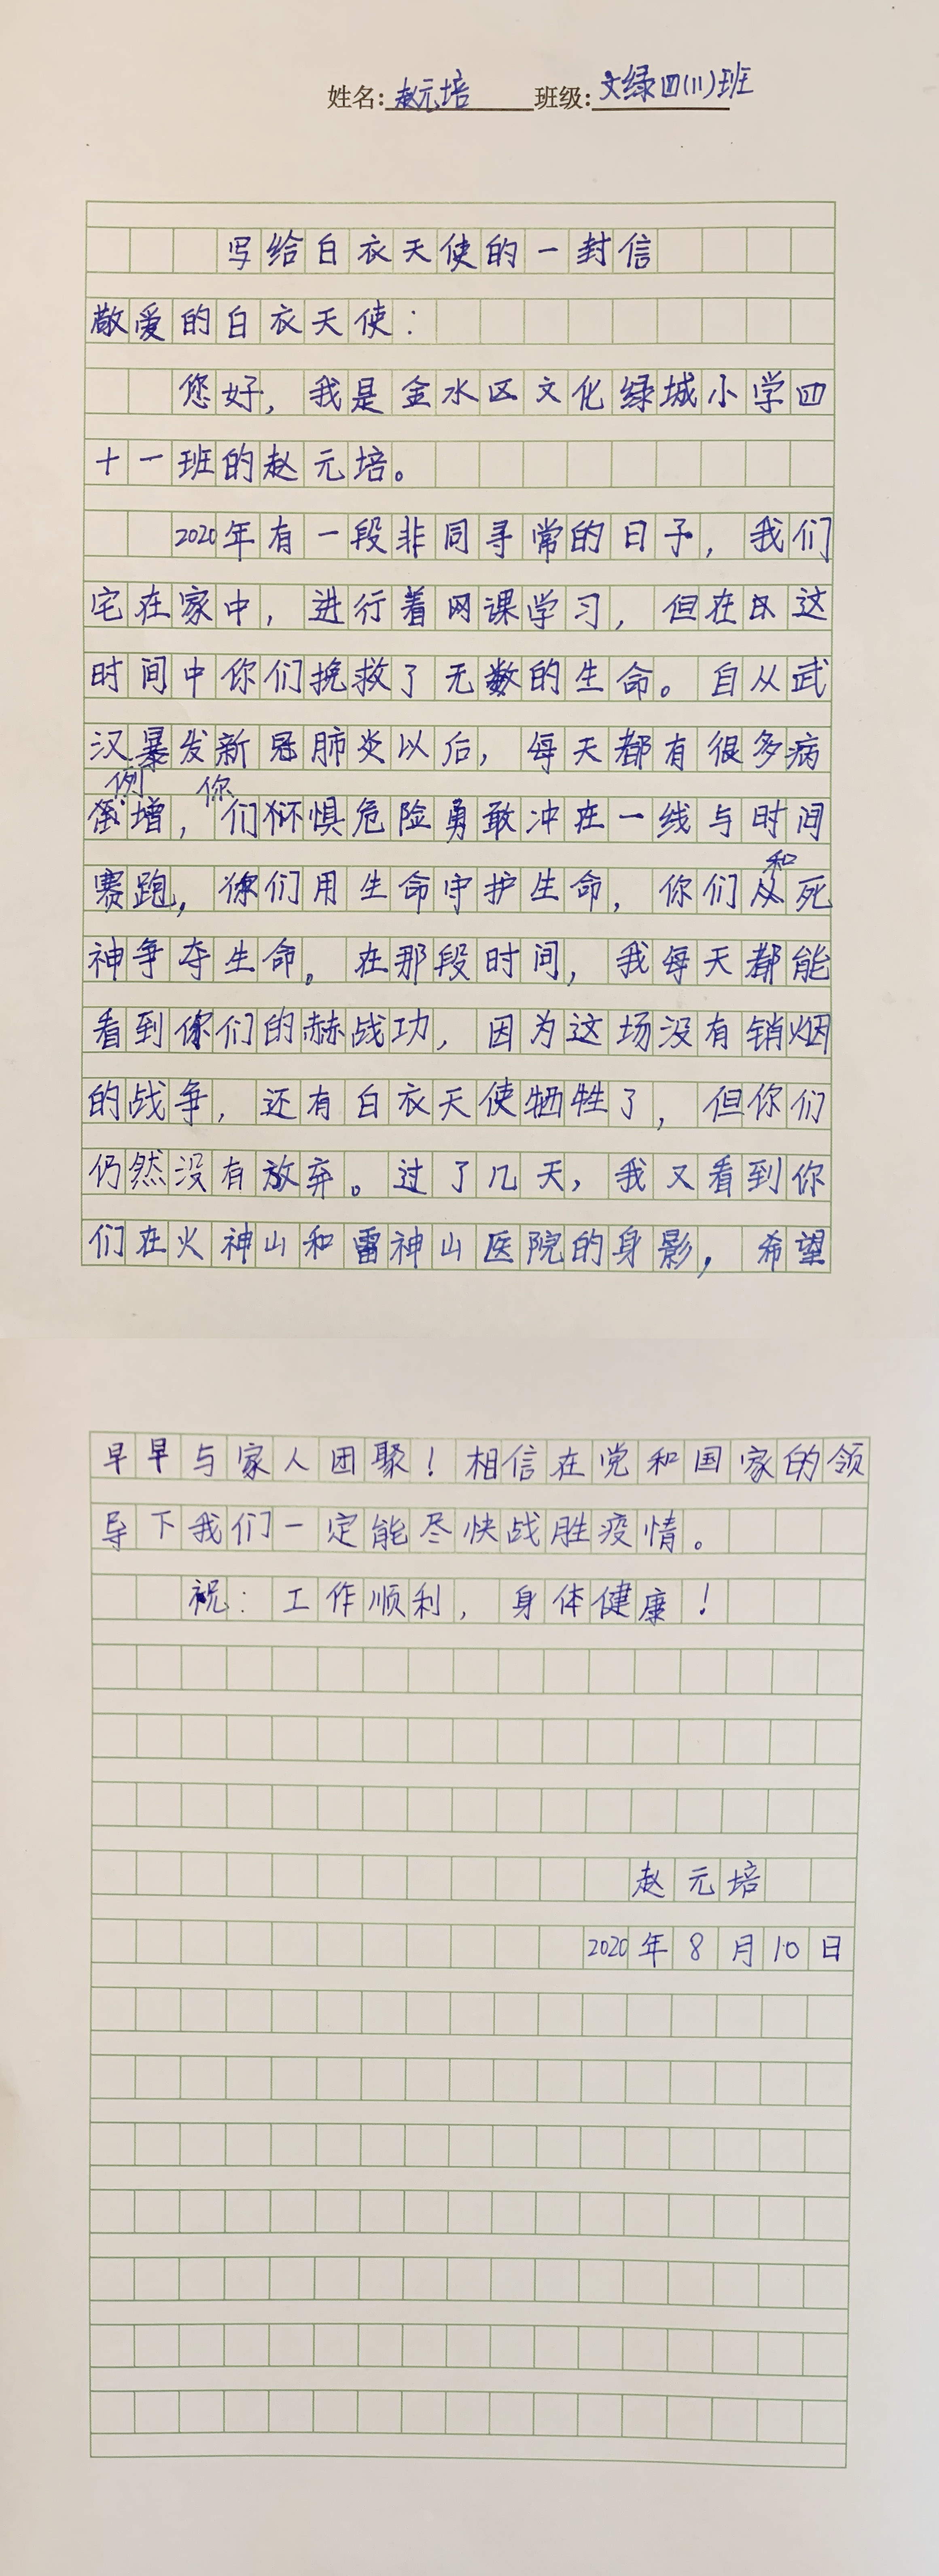 姓名:赵元培 班级:文绿四(11)班
写给白衣天使的一封信
敬爱的白衣天使:
您好,我是金水区文化绿城小学四
十一班的赵元培。
2020年有一段非同寻常的日子,我们
宅在家中,进行着网课学习,但在这
时间中你们挽救了无数的生命。自从武
汉暴发新冠肺炎以后,每天都有很多病
例增,你们不惧危险勇敢冲在一线与时间
赛跑,你们用生命守护生命,你们和死
神争夺生命。在那段时间,我每天都能
看到你们的赫战功,因为这场没有销烟
的战争,还有白衣天使牺牲了,但你们
仍然没有放弃。过了几天,我又看到你
们在火神山和雷神山医院的身影,希望
早早与家人团聚!相信在党和国家的领
导下我们一定能尽快战胜疫情。
祝:工作顺利,身体健康!
赵元培
2020年8月10日